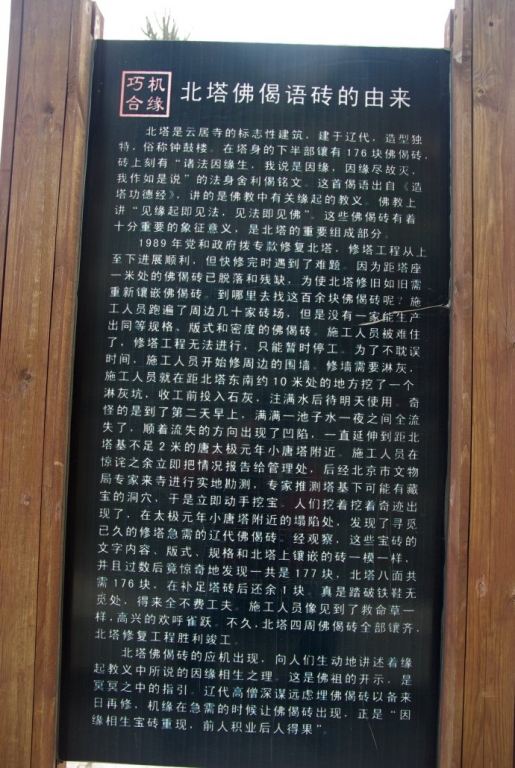 巧机
合缘
北塔佛偈语砖的由来
北塔是云居寺的标志性建筑，建于辽代，造型独
特，俗称钟鼓楼。在塔身的下半部镶有176块佛偈砖，
砖上刻有“诸法因缘生，我说是因缘，因缘尽故灭，
我作如是说”的法身舍利偈铭文。这首偈语出自《造
塔功德经》，讲的是佛教中有关缘起的教义。佛教上
讲“见缘起即见法，见法即见佛”。这些佛偈砖有着
十分重要的象征意义，是北塔的重要组成部分。
1989年党和政府拨专款修复北塔，修塔工程从上
至下进展顺利，但快修完时遇到了难题。因为距塔座
一米处的佛偈砖已脱落和残缺，为使北塔修旧如旧需
重新镶嵌佛偈砖。到哪里去找这百余块佛偈砖呢？施
工人员跑遍了周边几十家砖场，但是没有一家能生产
出同等规格、版式和密度的佛偈砖。施工人员被难住
了，修塔工程无法进行，只能暂时停工。为了不耽误
时间，施工人员开始修周边的围墙。修墙需要淋灰，
施工人员就在距北塔东南约10米处的地方挖了一个
淋灰坑，收工前投入石灰，注满水后待明天使用。奇
怪的是到了第二天早上，满满一池子水一夜之间全流
失了，顺着流失的方向出现了凹陷，一直延伸到距北
塔基不足2米的唐太极元年小唐塔附近。施工人员在
惊诧之余立即把情况报告给管理处，后经北京市文物
局专家来寺进行实地勘测，专家推测塔基下可能有藏
宝的洞穴，于是立即动手挖宝。人们挖着挖着奇迹出
现了，在太极元年小唐塔附近的塌陷处，发现了寻觅
已久的修塔急需的辽代佛偈砖。经观察，这些宝砖的
文字内容、版式、规格和北塔上镶嵌的砖一模一样，
并且过数后竟惊奇地发现一共是177块，北塔八面共
需176块，在补足塔砖后还余1块。真是踏破铁鞋无
觅处，得来全不费工夫。施工人员像见到了救命草一
样，高兴的欢呼雀跃。不久，北塔四周佛偈砖全部镶齐，
北塔修复工程胜利竣工。
北塔佛偈砖的应机出现，向人们生动地讲述着缘
起教义中所说的因缘相生之理。这是佛祖的开示，是
冥冥之中的指引。辽代高僧深谋远虑埋佛偈砖以备来
日再修，机缘在急需的时候让佛偈砖出现，正是“因
缘相生宝砖重现，前人积业后人得果”。